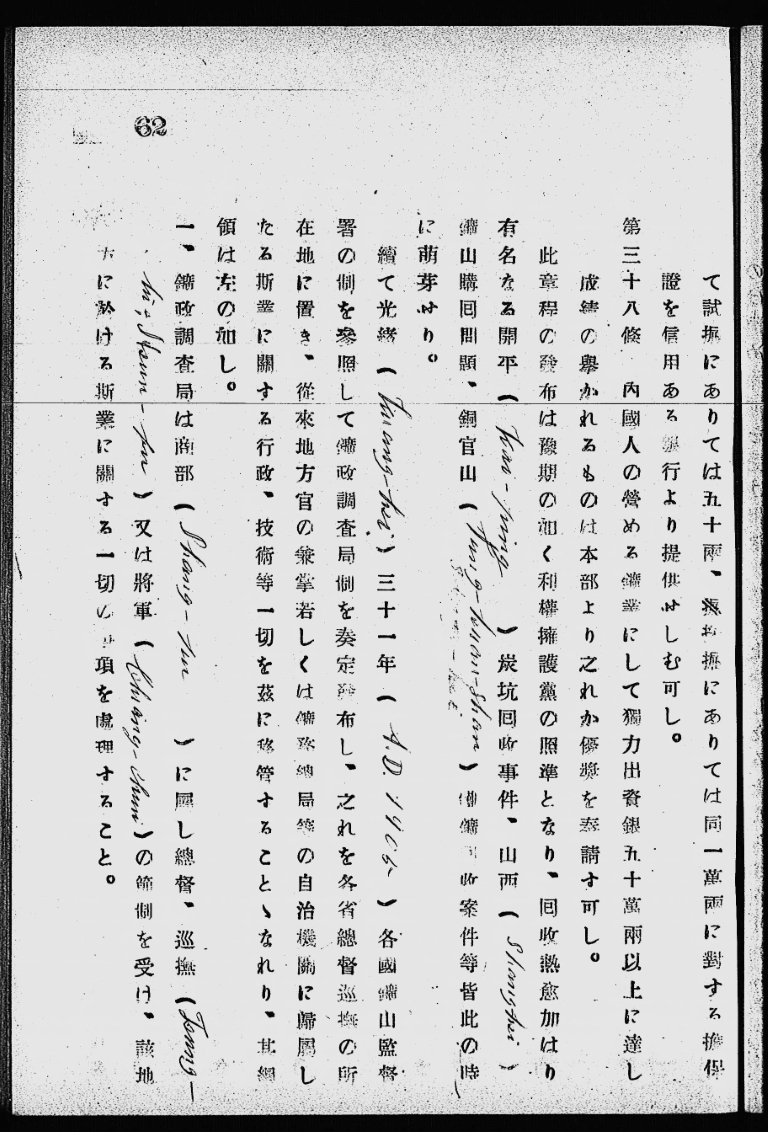 62
て試掘にありては五十兩、採掘にありては同一萬兩に對する擔保
證を信用ある銀行より提供せしむ可し。
第三十八條 內國人の營める鑛業にして獨力出資銀五十萬兩以上に達し
成績の擧かれるものは本部より之れか優奬を奏請す可し。
此章程の發布は豫期の如く利權擁護黨の照準となり、回收熱愈加はり
有名なる開平(Kai-ping)炭坑回收事件、山西(Shanghsi)
鑛山購回問題、銅官山(Tung-kuan-shan)鑛回收案件等皆此の時
に萌芽せり。
續て光緖(Kuang-hsi)三十一年(A.D. 1905)各國鑛山監督
署の制を參照して鑛政調査局制を奏定發布し、之れを各省總督巡撫の所
在地に置き、從來地方官の兼掌若しくは鑛務總局等の自治機關に歸屬し
たる斯業に關する行政、技術等一切を茲に移管することゝなれり、其綱
領は左の如し。
一、鑛政調査局は商部(Shang-pu)に屬し總督、巡撫(Tsung-
tu, Hsun-fu)又は將軍(Chiang-chun)の節制を受け、該地
方に於ける斯業に關する一切の事項を處理すること。